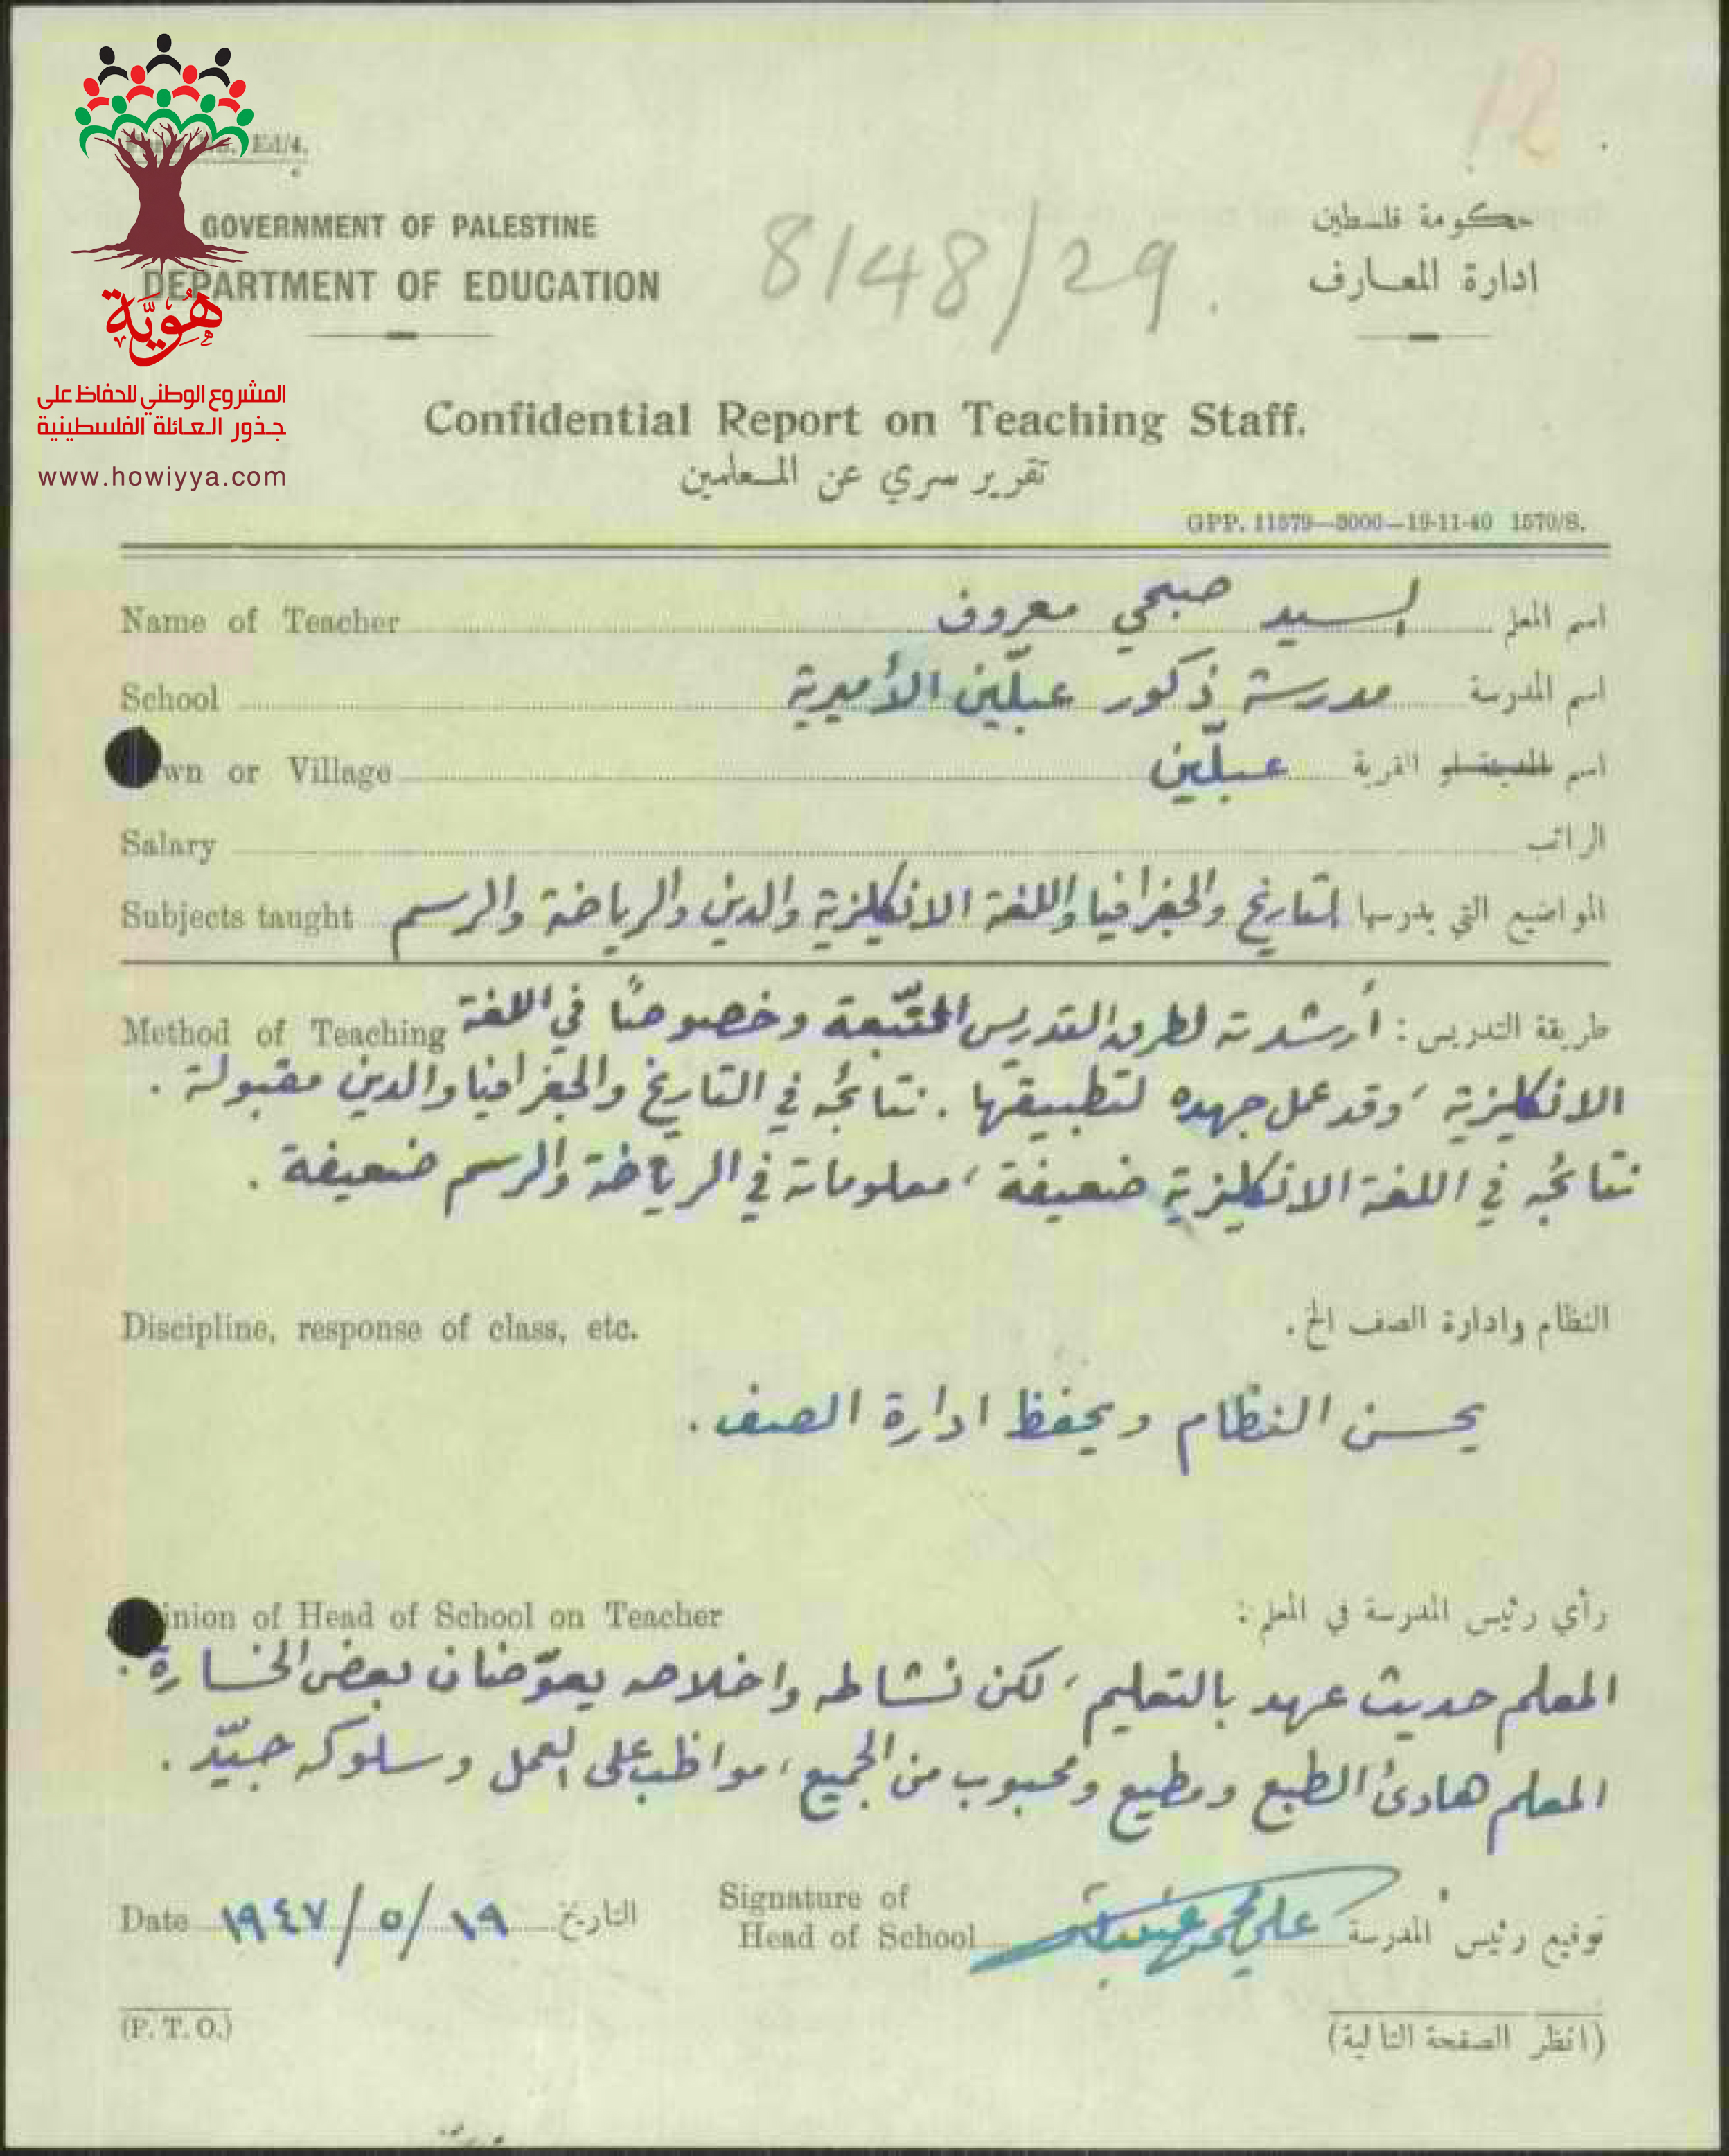 Ed/4.
GOVERNMENT OF PALESTINE
DEPARTMENT OF EDUCATION
حكومة فلسطين
ادارة المعارف
8/48/29.
هُوِيَّة
المشروع الوطني للحفاظ على
جذور العائلة الفلسطينية
www.howiyya.com
Confidential Report on Teaching Staff.
تقرير سري عن المعلمين
GPP. 11579—3000—19-11-40 1570/S.
Name of Teacher السيد صبحي معروف اسم المعلم
School مدرسة ذكور عبلّين الأميرية اسم المدرسة
wn or Village عبلّين اسم المدينة او القرية
Salary الراتب
Subjects taught التاريخ والجغرافيا واللغة الانكليزية والدين والرياضة والرسم المواضيع التي يدرسها
Method of Teaching طريقة التدريس : أرشدته لطرق التدريس المتّبعة وخصوصًا في اللغة
الانكليزية ، وقد عمل جهده لتطبيقها . نتائجه في التاريخ والجغرافيا والدين مقبولة .
نتائجه في اللغة الانكليزية ضعيفة ، معلوماته في الرياضة والرسم ضعيفة .
Discipline, response of class, etc. النظام وادارة الصف الخ .
يحسن النظام ويحفظ ادارة الصف .
inion of Head of School on Teacher رأي رئيس المدرسة في المعلم :
المعلم حديث عهد بالتعليم ، لكن نشاطه واخلاصه يعوّضان بعض الخسارة .
المعلم هادئ الطبع ومطيع ومحبوب من الجميع ، مواظب على العمل وسلوكه جيّد .
Date ١٩٤٧/٥/١٩ التاريخ
Signature of
Head of School توقيع رئيس المدرسة
(P. T. O.) (انظر الصفحة التالية)